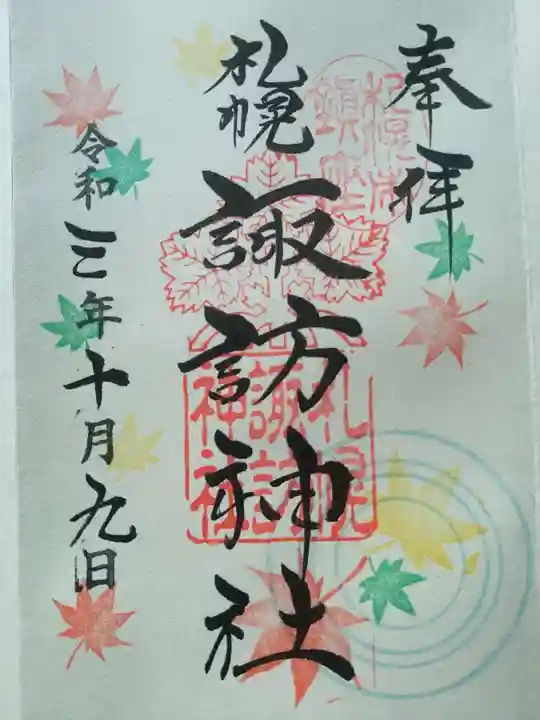 奉拝
札幌市鎮座
札幌
諏訪神社
札幌諏訪神社
令和三年十月九日